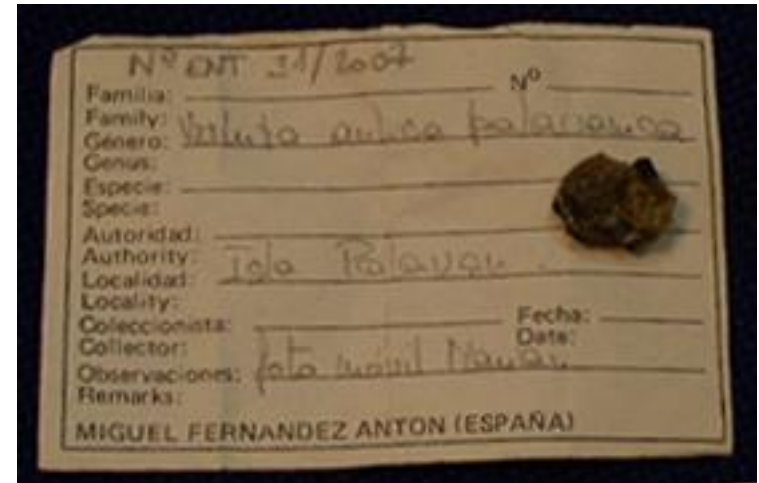 Nº ENT 31/2007
Familia: Nº
Family:
Género: palavanica
Genus:
Especie:
Specie:
Autoridad:
Authority: Isla Palavan
Localidad:
Locality:
Coleccionista: Fecha:
Collector: Date:
Observaciones: foto móvil
Remarks:
MIGUEL FERNANDEZ ANTON (ESPAÑA)